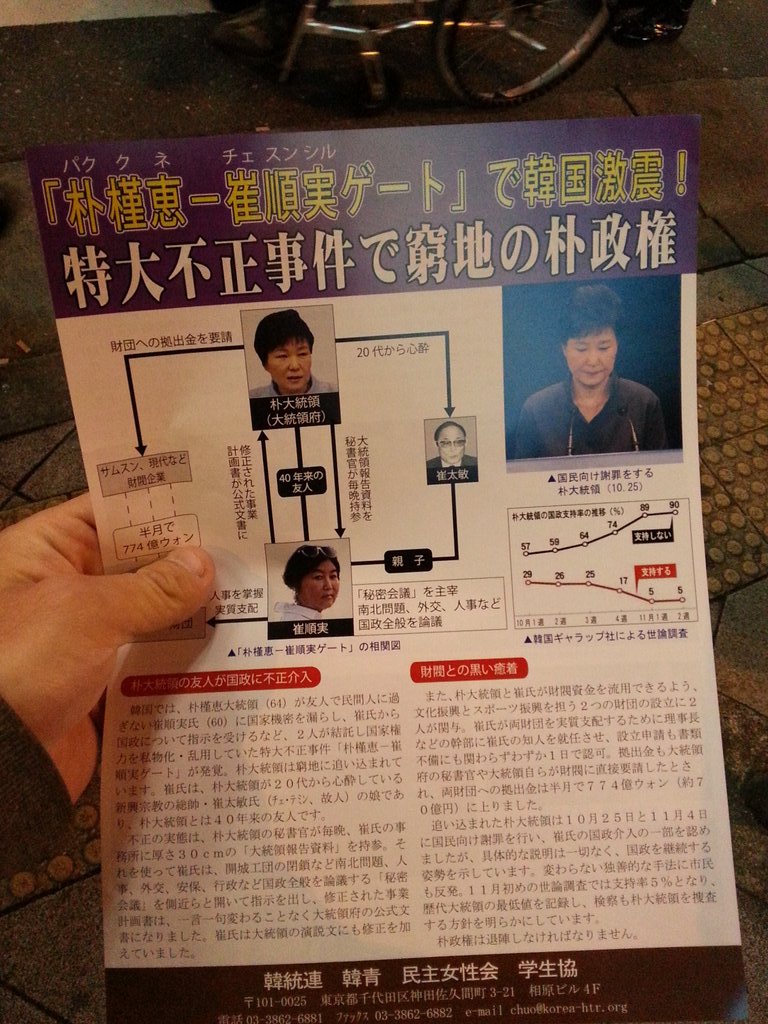 パク クネ チェ スンシル
「朴槿恵－崔順実ゲート」で韓国激震！
特大不正事件で窮地の朴政権
財団への拠出金を要請
20代から心酔
朴大統領
（大統領府）
サムスン、現代など
財閥企業
半月で
774億ウォン
修正された事業
計画書が公式文書に
40年来の
友人
大統領報告資料を
秘書官が毎晩持参
崔太敏
親子
人事を掌握
実質支配
財団
崔順実
「秘密会議」を主宰
南北問題、外交、人事など
国政全般を論議
▲「朴槿恵－崔順実ゲート」の相関図
▲国民向け謝罪をする
朴大統領（10.25）
朴大統領の国政支持率の推移（%）
57 59 64 74 89 90
支持しない
29 26 25 17 5 5
支持する
10月1週 2週 3週 4週 11月1週 2週
▲韓国ギャラップ社による世論調査
朴大統領の友人が国政に不正介入
韓国では、朴槿恵大統領（64）が友人で民間人に過
ぎない崔順実氏（60）に国家機密を漏らし、崔氏から
国政について指示を受けるなど、２人が結託し国家権
力を私物化・乱用していた特大不正事件「朴槿恵－崔
順実ゲート」が発覚。朴大統領は窮地に追い込まれて
います。崔氏は、朴大統領が２０代から心酔している
新興宗教の総帥・崔太敏氏（チェ・テミン、故人）の娘であ
り、朴大統領とは４０年来の友人です。
不正の実態は、朴大統領の秘書官が毎晩、崔氏の事
務所に厚さ３０ｃｍの「大統領報告資料」を持参。そ
れを使って崔氏は、開城工団の閉鎖など南北問題、人
事、外交、安保、行政など国政全般を論議する「秘密
会議」を側近らと開いて指示を出し、修正された事業
計画書は、一言一句変わることなく大統領府の公式文
書になりました。崔氏は大統領の演説文にも修正を加
えていました。
財閥との黒い癒着
また、朴大統領と崔氏が財閥資金を流用できるよう、
文化振興とスポーツ振興を担う２つの財団の設立に２
人が関与。崔氏が両財団を実質支配するために理事長
などの幹部に崔氏の知人を就任させ、設立申請も書類
不備にも関わらずわずか１日で認可。拠出金も大統領
府の秘書官や大統領自らが財閥に直接要請したとさ
れ、両財団への拠出金は半月で７７４億ウォン（約７
０億円）に上りました。
追い込まれた朴大統領は１０月２５日と１１月４日
に国民向け謝罪を行い、崔氏の国政介入の一部を認め
ましたが、具体的な説明は一切なく、国政を継続する
姿勢を示しています。変わらない独善的な手法に市民
も反発。１１月初めの世論調査では支持率５％となり、
歴代大統領の最低値を記録し、検察も朴大統領を捜査
する方針を明らかにしています。
朴政権は退陣しなければなりません。
韓統連 韓青 民主女性会 学生協
〒101-0025 東京都千代田区神田佐久間町3-21 相原ビル４Ｆ
電話 03-3862-6881 ファックス 03-3862-6882 e-mail chuo@korea-htr.org